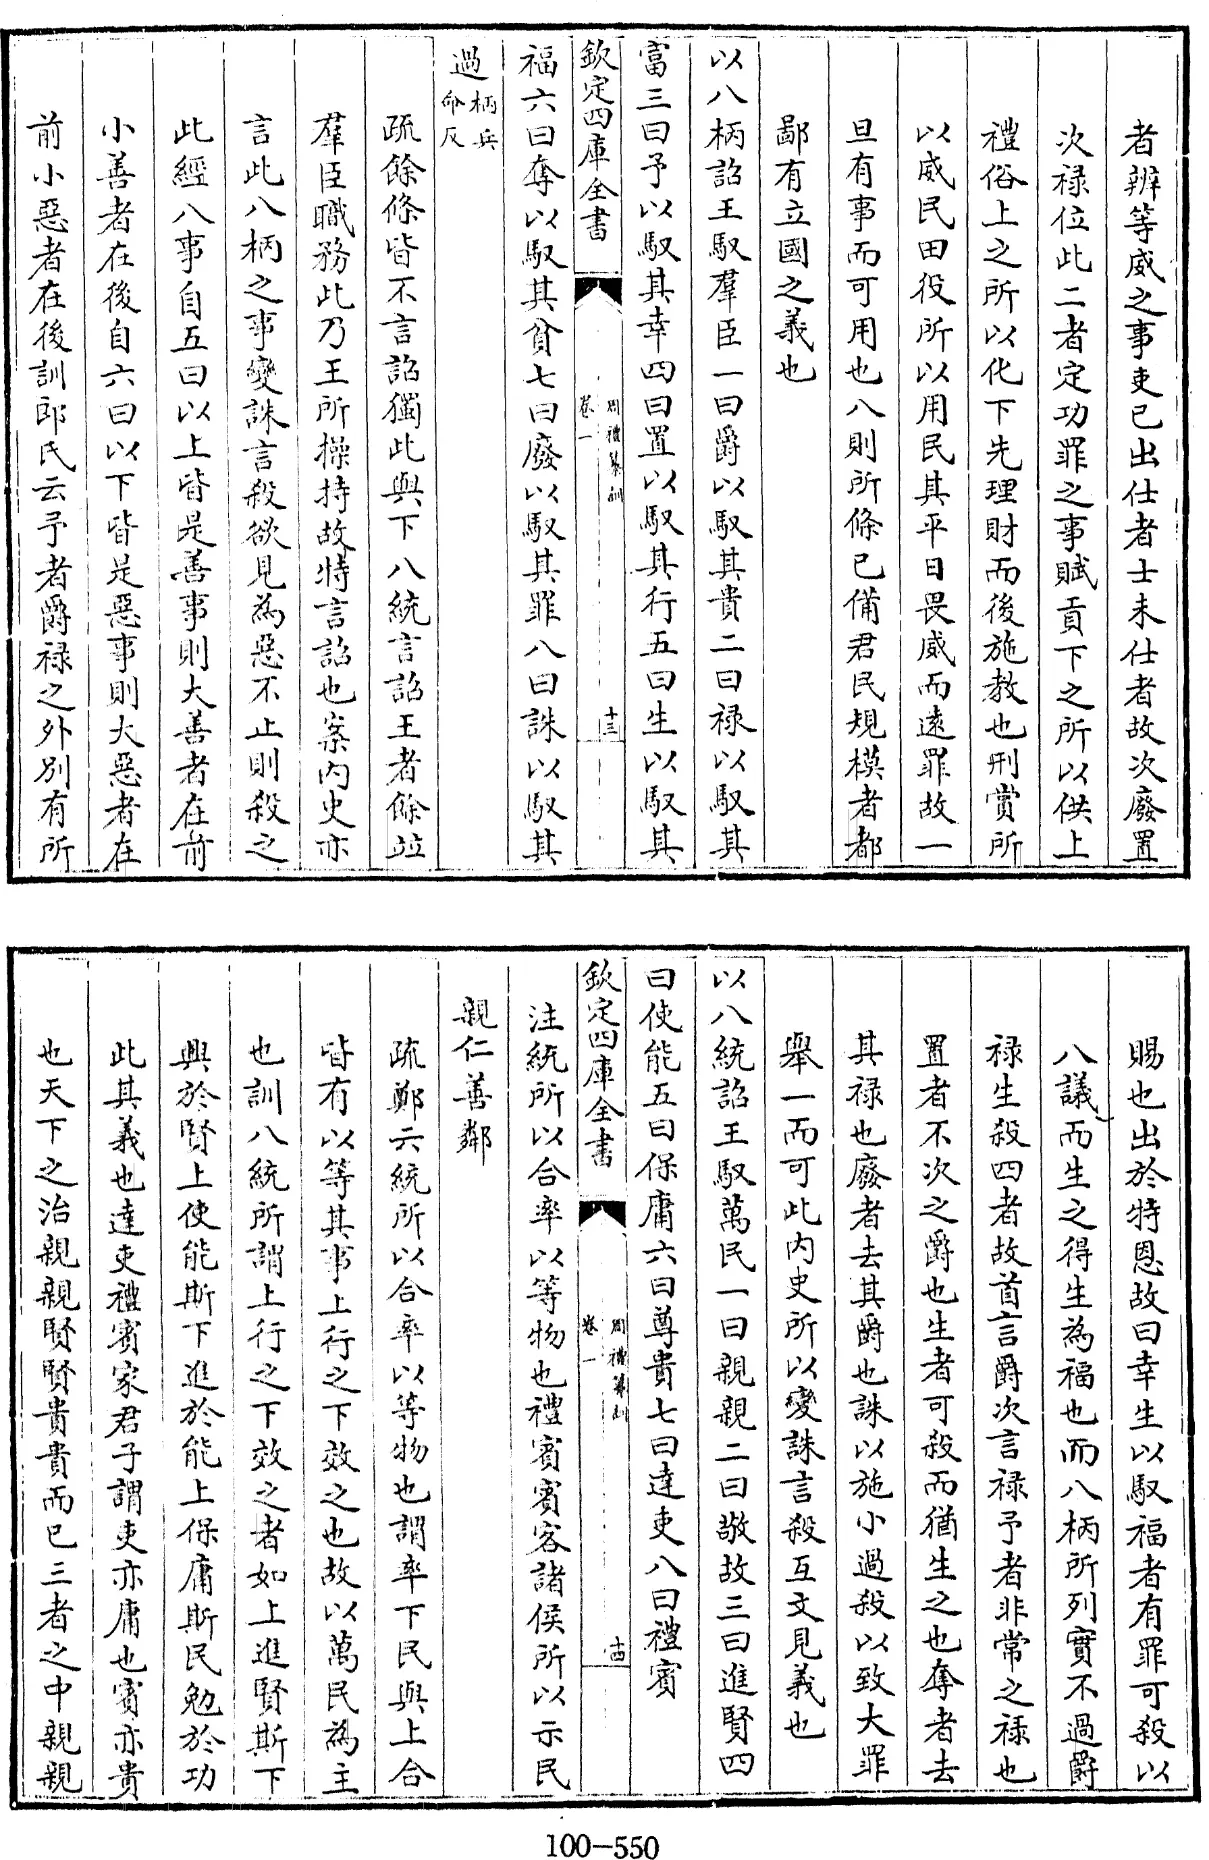 者辨等威之事吏已出仕者士未仕者故次廢置
次禄位此二者定功罪之事賦貢下之所以供上
禮俗上之所以化下先理財而後施教也刑賞所
以威民田役所以用民其平日畏威而遠罪故一
旦有事而可用也八則所條已備君民規模者都
鄙有立國之義也
以八柄詔王馭羣臣一曰爵以馭其貴二曰禄以馭其
富三曰予以馭其幸四曰置以馭其行五曰生以馭其
欽定四庫全書
周禮纂訓
卷一
十三
福六曰奪以馭其貧七曰廢以馭其罪八曰誅以馭其
過柄兵
命反
疏餘條皆不言詔獨此與下八統言詔王者餘竝
羣臣職務此乃王所操持故特言詔也案内史亦
言此八柄之事變誅言殺欲見為惡不止則殺之
此經八事自五曰以上皆是善事則大善者在前
小善者在後自六曰以下皆是惡事則大惡者在
前小惡者在後訓郎氏云予者爵禄之外別有所
賜也出於特恩故曰幸生以馭福者有罪可殺以
八議而生之得生為福也而八柄所列實不過爵
禄生殺四者故首言爵次言禄予者非常之禄也
置者不次之爵也生者可殺而猶生之也奪者去
其禄也廢者去其爵也誅以施小過殺以致大罪
舉一而可此内史所以變誅言殺互文見義也
以八統詔王馭萬民一曰親親二曰敬故三曰進賢四
曰使能五曰保庸六曰尊貴七曰達吏八曰禮賓
欽定四庫全書
周禮纂訓
卷一
十四
注統所以合率以等物也禮賓賓客諸侯所以示民
親仁善鄰
疏鄭云統所以合率以等物也謂率下民與上合
皆有以等其事上行之下效之也故以萬民為主
也訓八統所謂上行之下效之者如上進賢斯下
興於賢上使能斯下進於能上保庸斯民勉於功
此其義也達吏禮賓家君子謂吏亦庸也賓亦貴
也天下之治親親賢賢貴貴而已三者之中親親
100-550